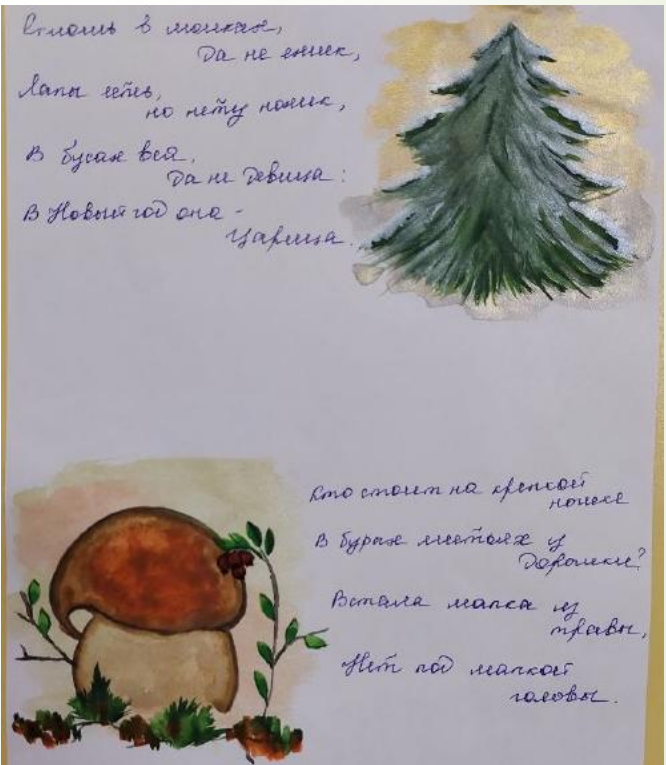 Сплошь в иголках,
Да не ёжик,
Лапы есть,
но нету ножек,
В бусах вся,
Да не девица:
В Новый год она -
Царица.
Кто стоит на крепкой
ножке
В бурых листьях у
дорожки?
Встала шапка из
травы,
Нет под шапкой
головы.